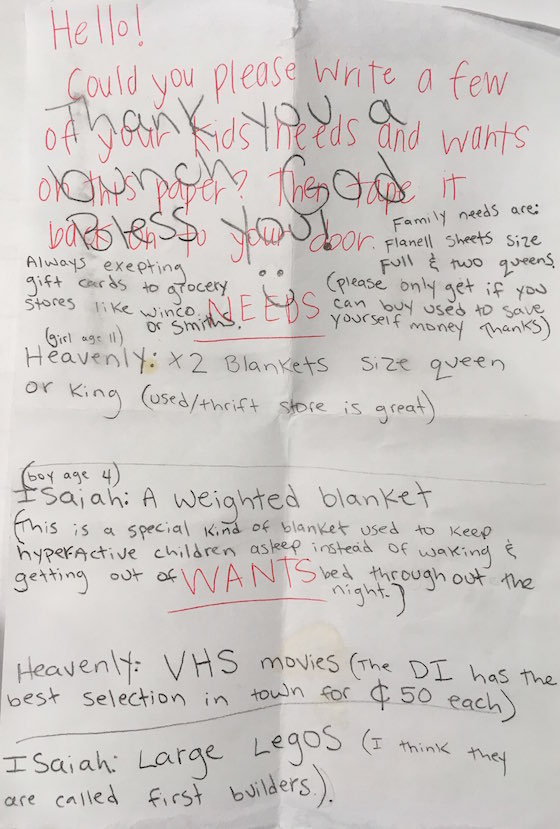 Hello!
Could you please write a few
of your kids needs and wants
on this paper? Then tape it
back on to your door.
Thank you a
bunch God
Bless you!
Family needs are:
Flanell sheets size
Full & two queens.
(please only get if you
can buy used to save
yourself money thanks)
Always exepting
gift cards to grocery
stores like winco
or smiths.
NEEDS
(girl age 11)
Heavenly: x2 Blankets size queen
or King (used/thrift store is great)
(boy age 4)
ISaiah: A weighted blanket
(This is a special kind of blanket used to keep
hyperActive children asleep instead of waking &
getting out of bed through out the
night.)
WANTS
Heavenly: VHS movies (The DI has the
best selection in town for ¢50 each)
ISaiah: Large Legos (I think they
are called first builders.).